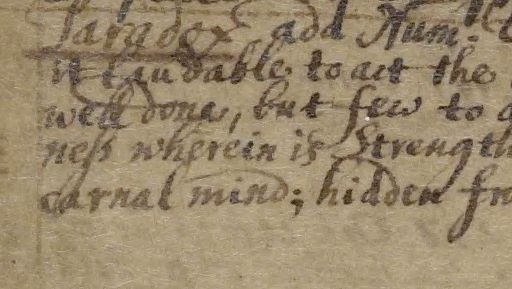 Paradox add Num.
it laudable to act the
well done, but few to
ness wherein is Strength
carnal mind; hidden fr